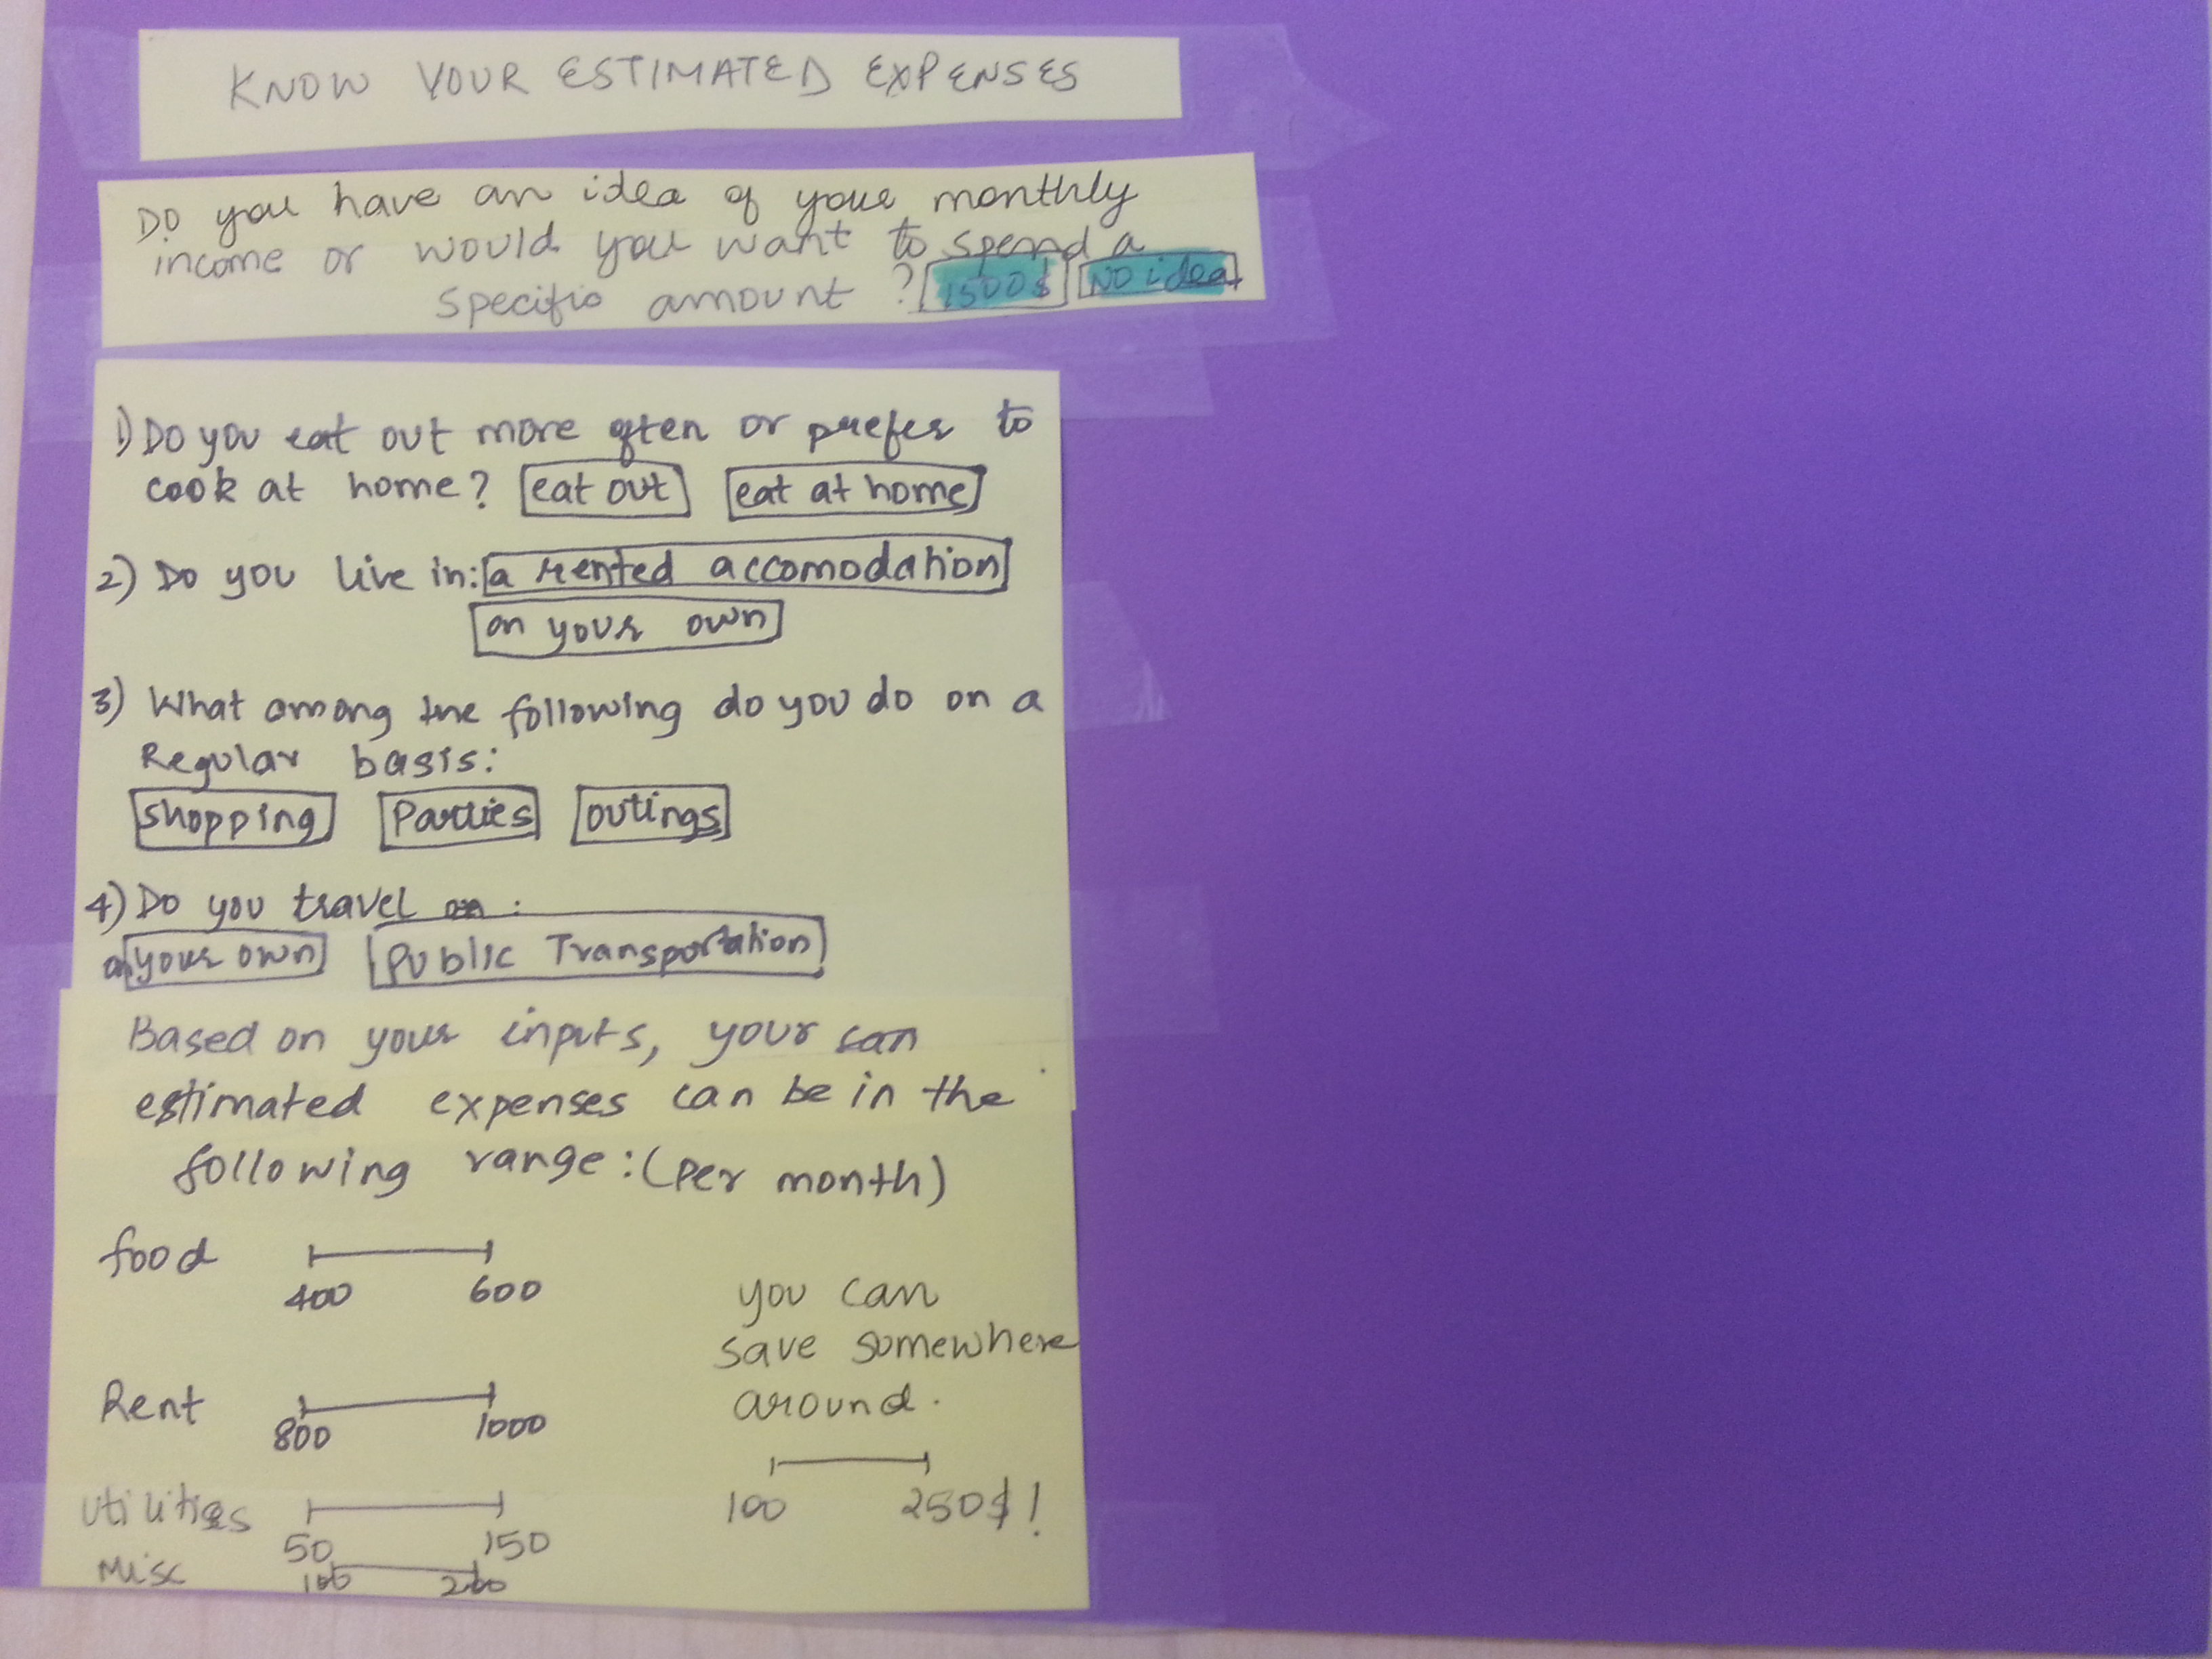 KNOW YOUR ESTIMATED EXPENSES
Do you have an idea of your monthly
income or would you want to spend a
specific amount? 1500$ NO idea
1) Do you eat out more often or prefer to
cook at home? eat out eat at home
2) Do you live in: a rented accomodation
on your own
3) What among the following do you do on a
Regular basis:
Shopping Parties outings
4) Do you travel on:
a your own Public Transportation
Based on your inputs, your can
estimated expenses can be in the
following range: (Per month)
food 400 600
you can
save somewhere
around.
Rent 800 1000
100 250$!
Utilities 50 150
Misc 100 200